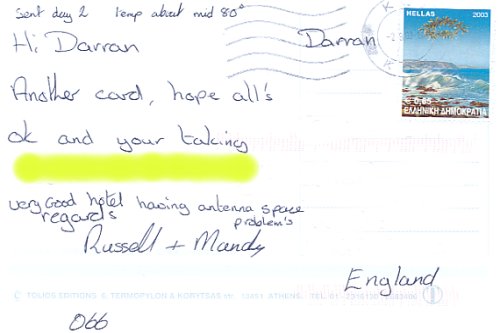 Sent day 2 temp about mid 80°
Hi Darran
Another card, hope all's
ok and your taking
very Good hotel having antenna space
problem's
regards
Russell + Mandy
066
Darran
England
HELLAS 2003
€ 0,65
ΕΛΛΗΝΙΚΗ ΔΗΜΟΚΡΑΤΙΑ
EDITIONS S. TERMOPYLON & KORYTSAS ATHENS. TEL.